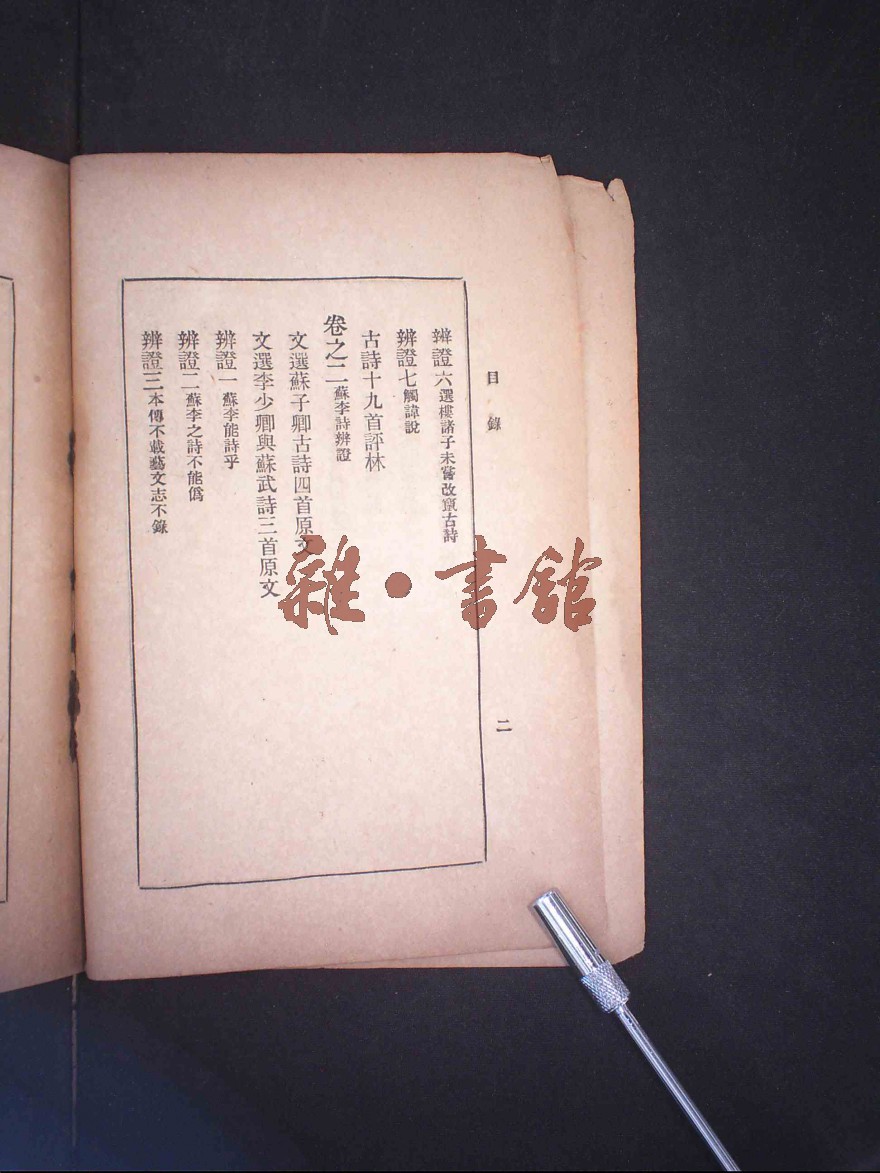 目錄
辨證六選樓諸子未嘗改竄古詩
辨證七觸諱說
古詩十九首評林
卷之二蘇李詩辨證
文選蘇子卿古詩四首原文
文選李少卿與蘇武詩三首原文
辨證一蘇李能詩乎
辨證二蘇李之詩不能僞
辨證三本傳不載藝文志不錄
二
雜·書館